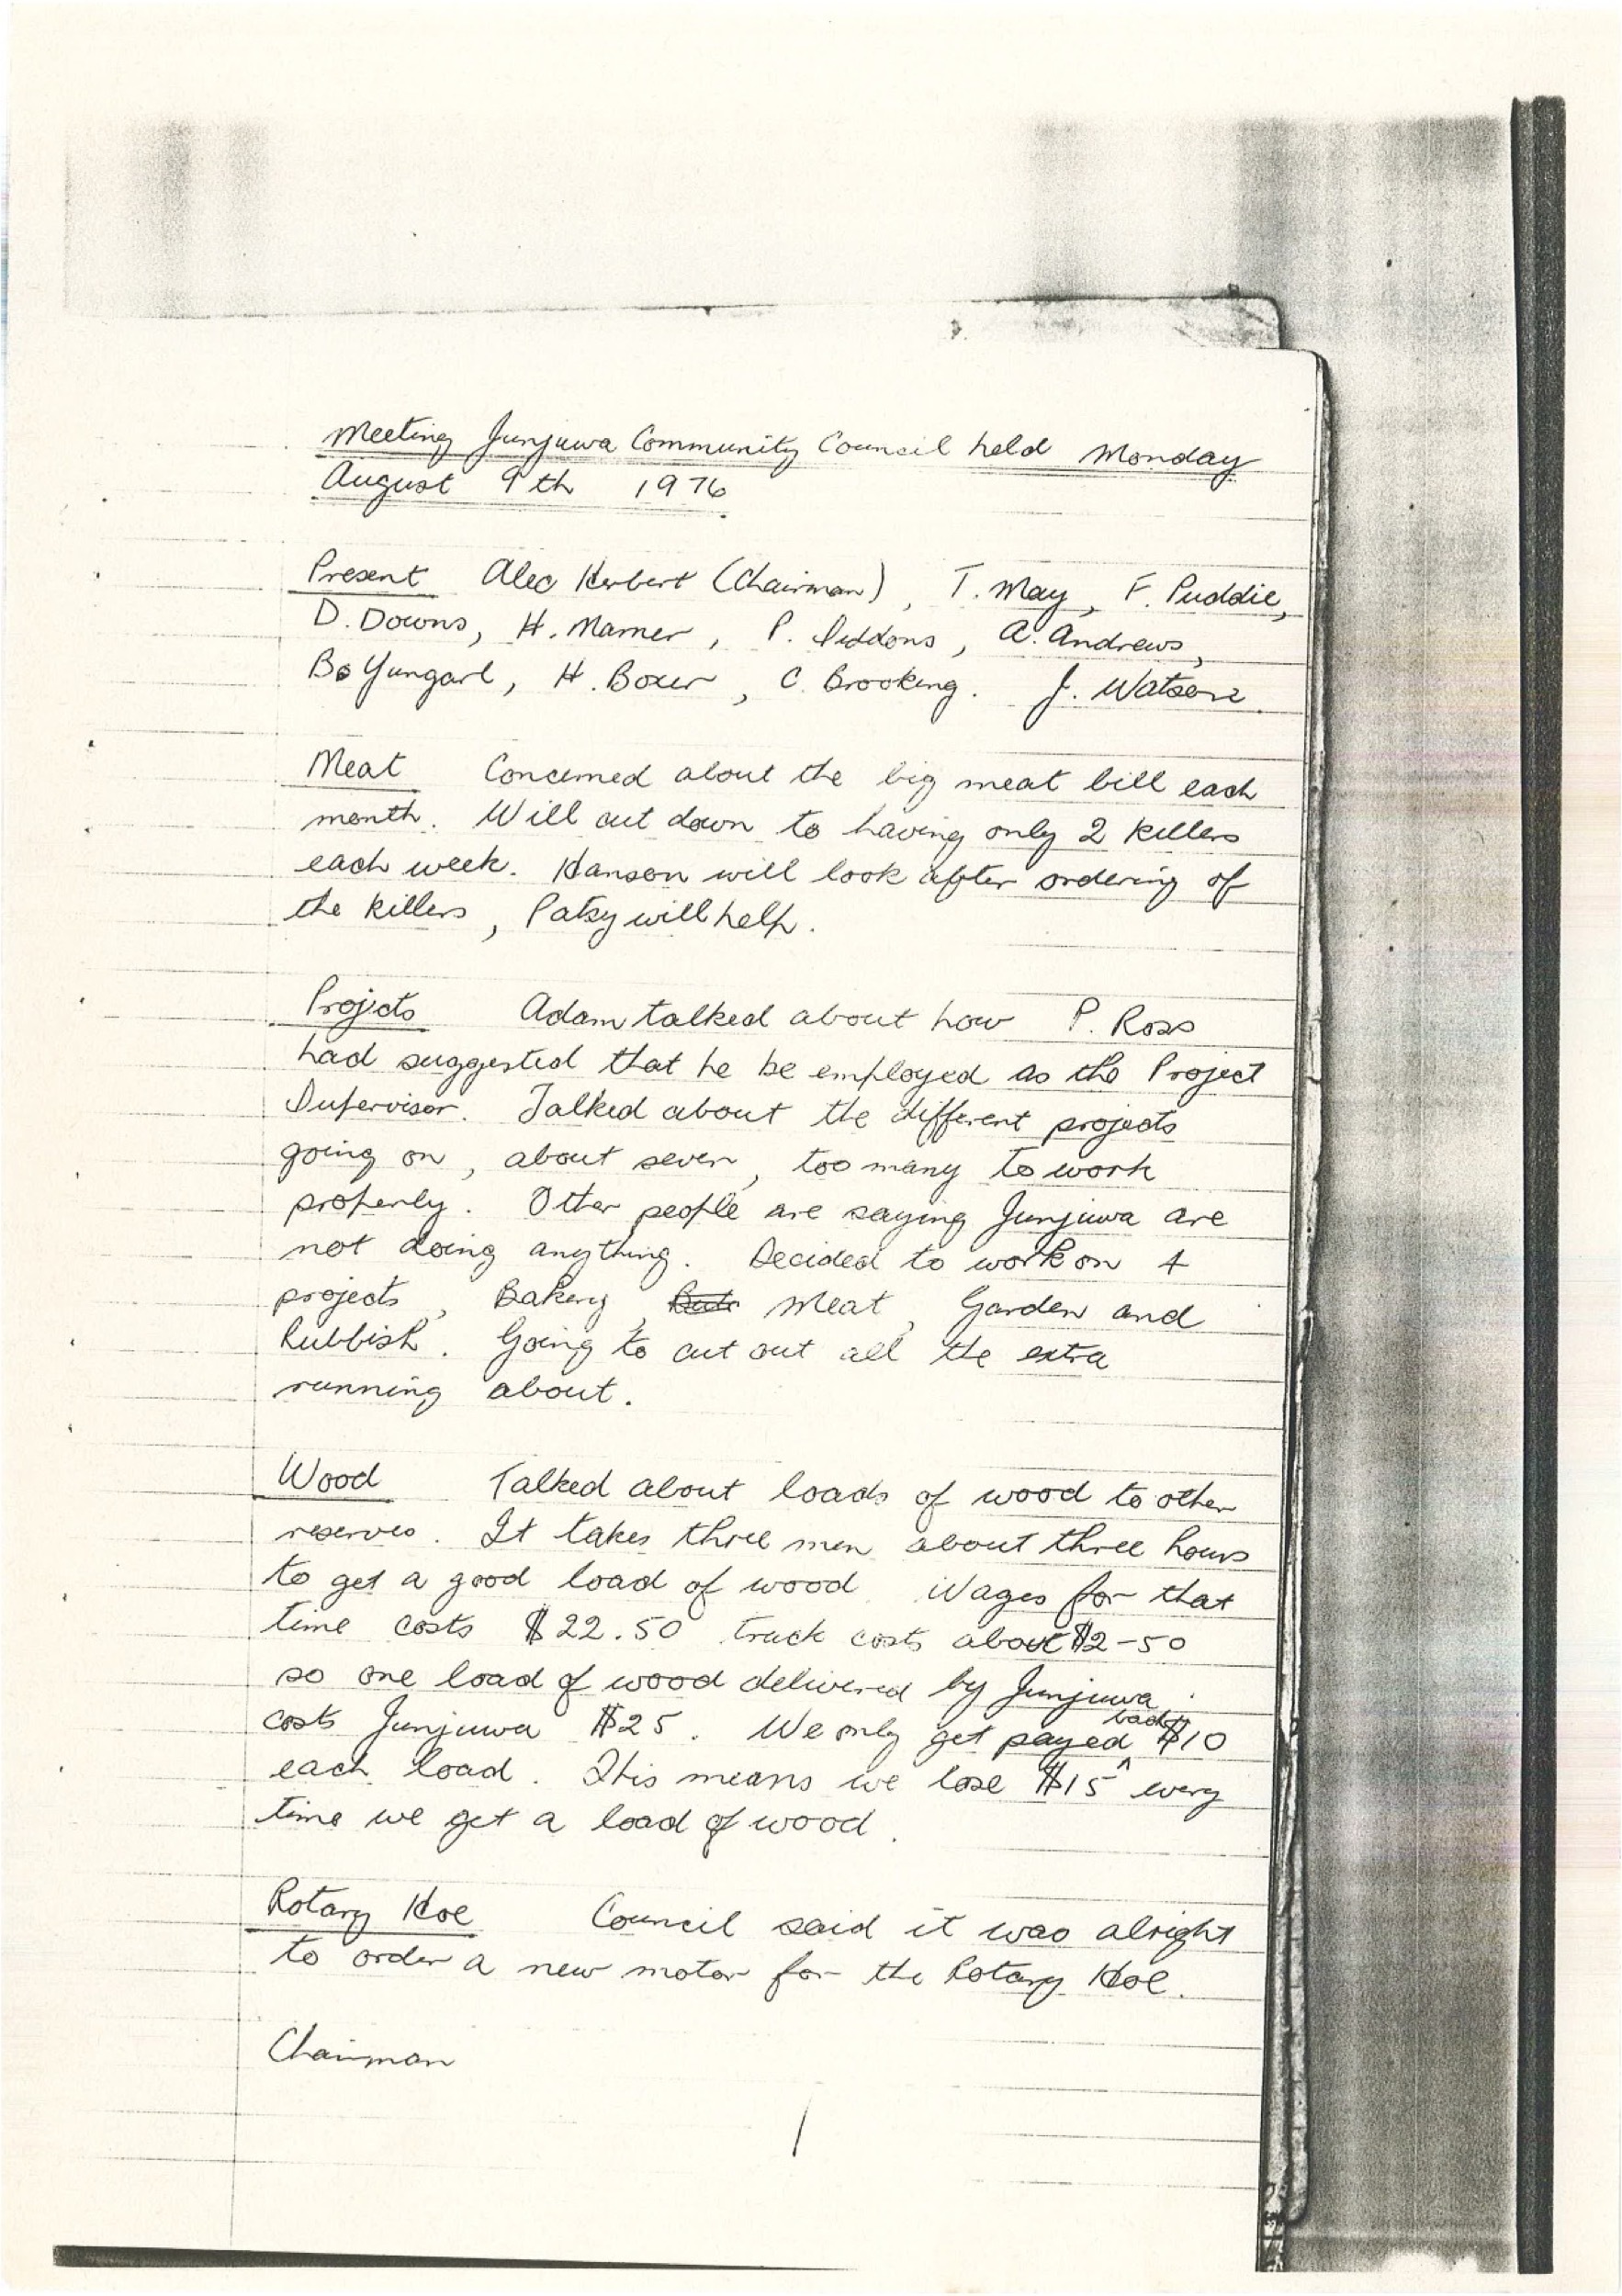 Meeting Junjuwa Community Council held Monday
August 9th 1976
Present Alec Herbert (Chairman), T. May, F. Puddie,
D. Downs, H. Mamer, P. Siddons, A. Andrews,
Bo Yungarl, H. Boxer, C. Brooking. J. Watson.
Meat Concerned about the big meat bill each
month. Will cut down to having only 2 killers
each week. Hanson will look after ordering of
the killers, Patsy will help.
Projcts Adam talked about how P. Ross
had suggested that he be employed as the Project
Supervisor. Talked about the different projects
going on, about seven, too many to work
properly. Other people are saying Junjuwa are
not doing anything. Decided to work on 4
projects, Bakery, Meat, Garden and
Rubbish. Going to cut out all the extra
running about.
Wood Talked about loads of wood to other
reserves. It takes three men about three hours
to get a good load of wood. Wages for that
time costs $22.50 truck costs about $2-50
so one load of wood delivered by Junjuwa
costs Junjuwa $25. We only get payed back $10
each load. This means we lose $15 every
time we get a load of wood.
Rotary Hoe Council said it was alright
to order a new motor for the Rotary Hoe.
Chairman